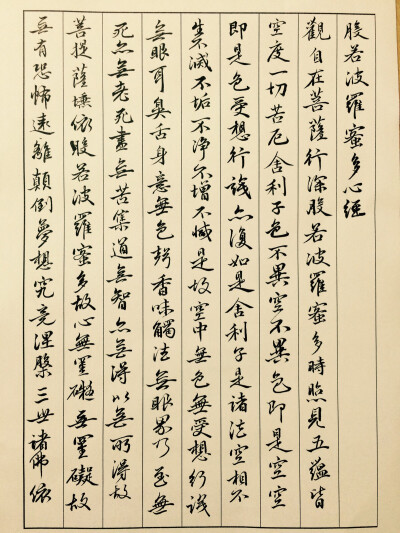 般若波羅蜜多心經
觀自在菩薩行深般若波羅蜜多時照見五蘊皆
空度一切苦厄舍利子色不異空不異色即是空空
即是色受想行識亦復如是舍利子是諸法空相不
生不滅不垢不净不增不減是故空中無色無受想行識
無眼耳鼻舌身意無色聲香味觸法無眼界乃至無
死亦無老死盡無苦集道無智亦無得以無所得故
菩提薩埵依般若波羅蜜多故心無罣礙無罣礙故
無有恐怖遠離顛倒夢想究竟涅槃三世諸佛依